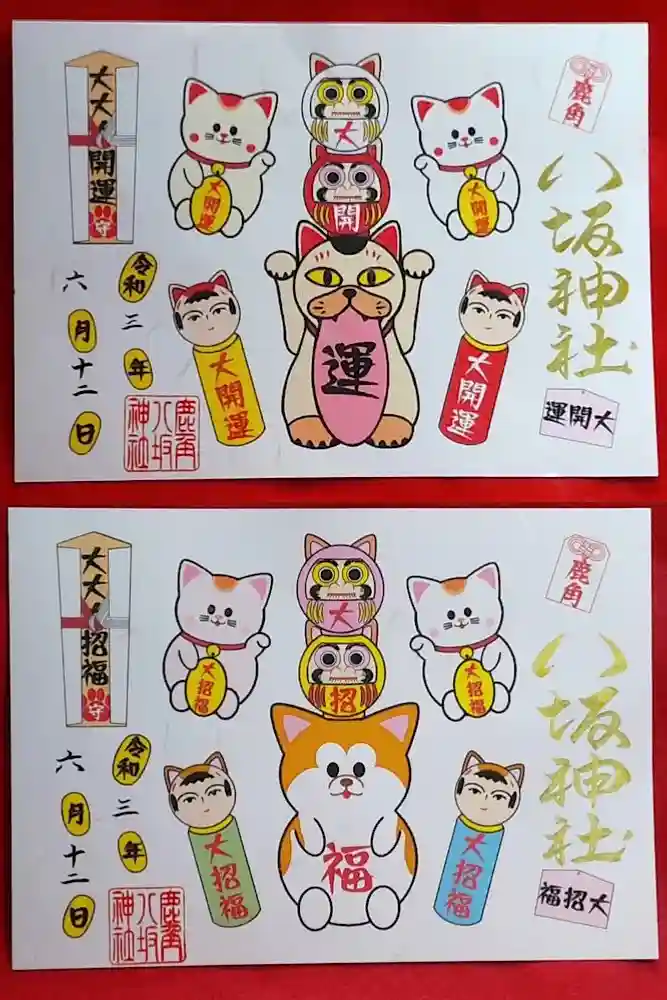 鹿角
八坂神社
大開運
大
開
運
大開運
大開運
大開運
大開運
大大開運
守
令和三年
六月十二日
鹿角
八坂
神社
鹿角
八坂神社
大招福
大
招
福
大招福
大招福
大招福
大招福
大大招福
守
令和三年
六月十二日
鹿角
八坂
神社